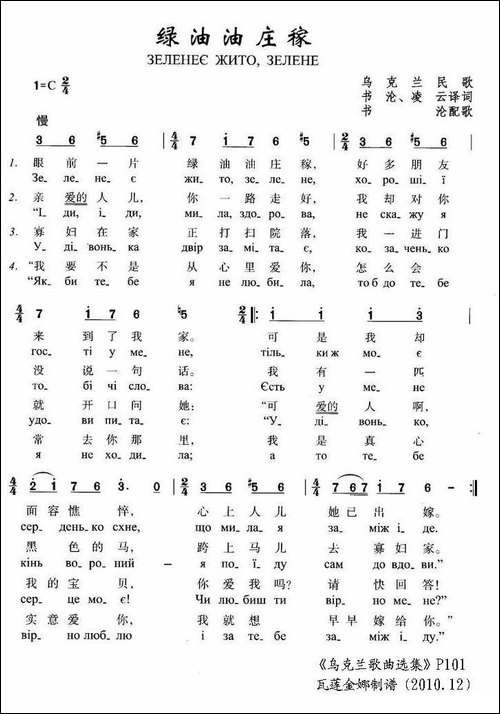 绿油油庄稼
ЗЕЛЕНЕЄ ЖИТО, ЗЕЛЕНЕ
1=C 2/4
乌克兰民歌
书沦、凌云译词
书沦配歌
慢
3 6 #5 6 | 4/4 7 1 7 6 #5 | 2/4 3 6 #5 6
1. 眼前一片 绿油油庄稼, 好多朋友
Зе_ ле_ не_ є жи_ то, зе_ ле_ не, хо_ ро_ ші_ ї
2. 亲爱的人儿, 你一路走好, 我却对你
“І_ ди, і_ ди, ми_ ла, здо_ ро_ ва, не ска_ жу я
3. 寡妇在家 正打扫院落, 我一进门
У_ ді_ вонь_ ка двір за_ мі_ та_ є, ко_ за_ чень_ ко
4. “我要不是 从心里爱你, 怎么会
“Як_ би те_ бе я не лю_ би_ ла, то б до те_ бе
4/4 7 1 7 6 #5 | 2/4 1 1 1 3
来到了我家。 可是我却
гос_ ті у ме_ не, тіль_ ки ж мо_ є
没说一句话。 我有一匹
то_ бі чі сло_ ва: Єсть у ме_ не
就开口问她: “可爱的人啊,
удо_ ви пи_ та_ є: “У_ ді_ вонь_ ко,
常去你那里, 我是真心
я не хо_ ди_ ла; а то те_ бе
4/4 2 1 1 7 6 3. 0 | 2/4 3 6 #5 6 | 4/4 7 6 7 1 7 6 –
面容憔悴, 心上人儿 她已出嫁。
сер_ день_ ко схне, що ми_ ла_ я за_ між і_ де.
黑色的马, 跨上马儿 去寡妇家。
кінь во_ ро_ ний – я по_ ї_ ду сам до вдо_ ви.”
我的宝贝, 你爱我吗? 请快回答!
сер_ це мо_ є! Чи лю_ биш ти вір_ но ме_ не?”
实意爱你, 也就想 早早嫁给你。”
вір_ но люб_ лю і за те_ бе за_ між і_ ду.”
《乌克兰歌曲选集》P101
瓦莲金娜制谱 (2010.12)